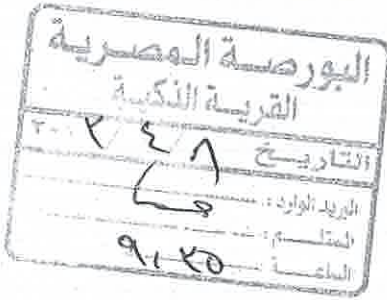 البورصة المصرية
القرية الذكية
التاريخ ٨ / ٤ / ٢٠٢
البريد الوارد :
المستلم :
الساعة : ٩,٣٥